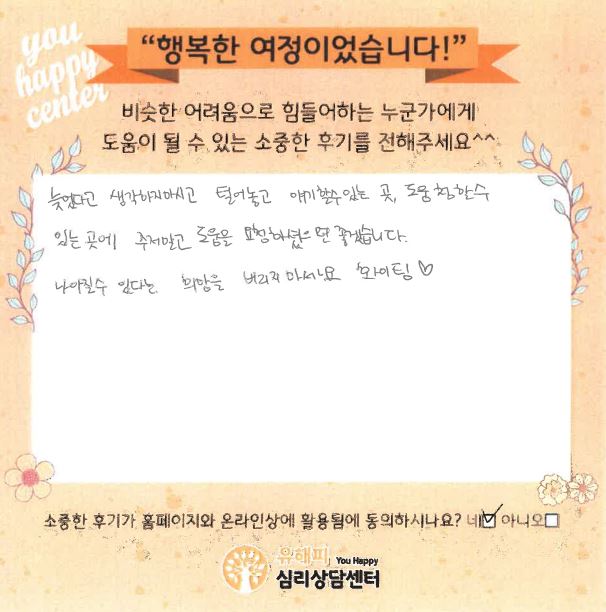 you
happy
center
“행복한 여정이었습니다!”
비슷한 어려움으로 힘들어하는 누군가에게
도움이 될 수 있는 소중한 후기를 전해주세요^^
늦었다고 생각하지마시고 털어놓고 얘기할수있는 곳, 도움 청할수
있는 곳에 주저말고 도움을 요청하셨으면 좋겠습니다.
나아질수 있다는 희망을 버리지 마세요 화이팅♡
소중한 후기가 홈페이지와 온라인상에 활용됨에 동의하시나요? 네☑ 아니오□
유해피 You Happy
심리상담센터